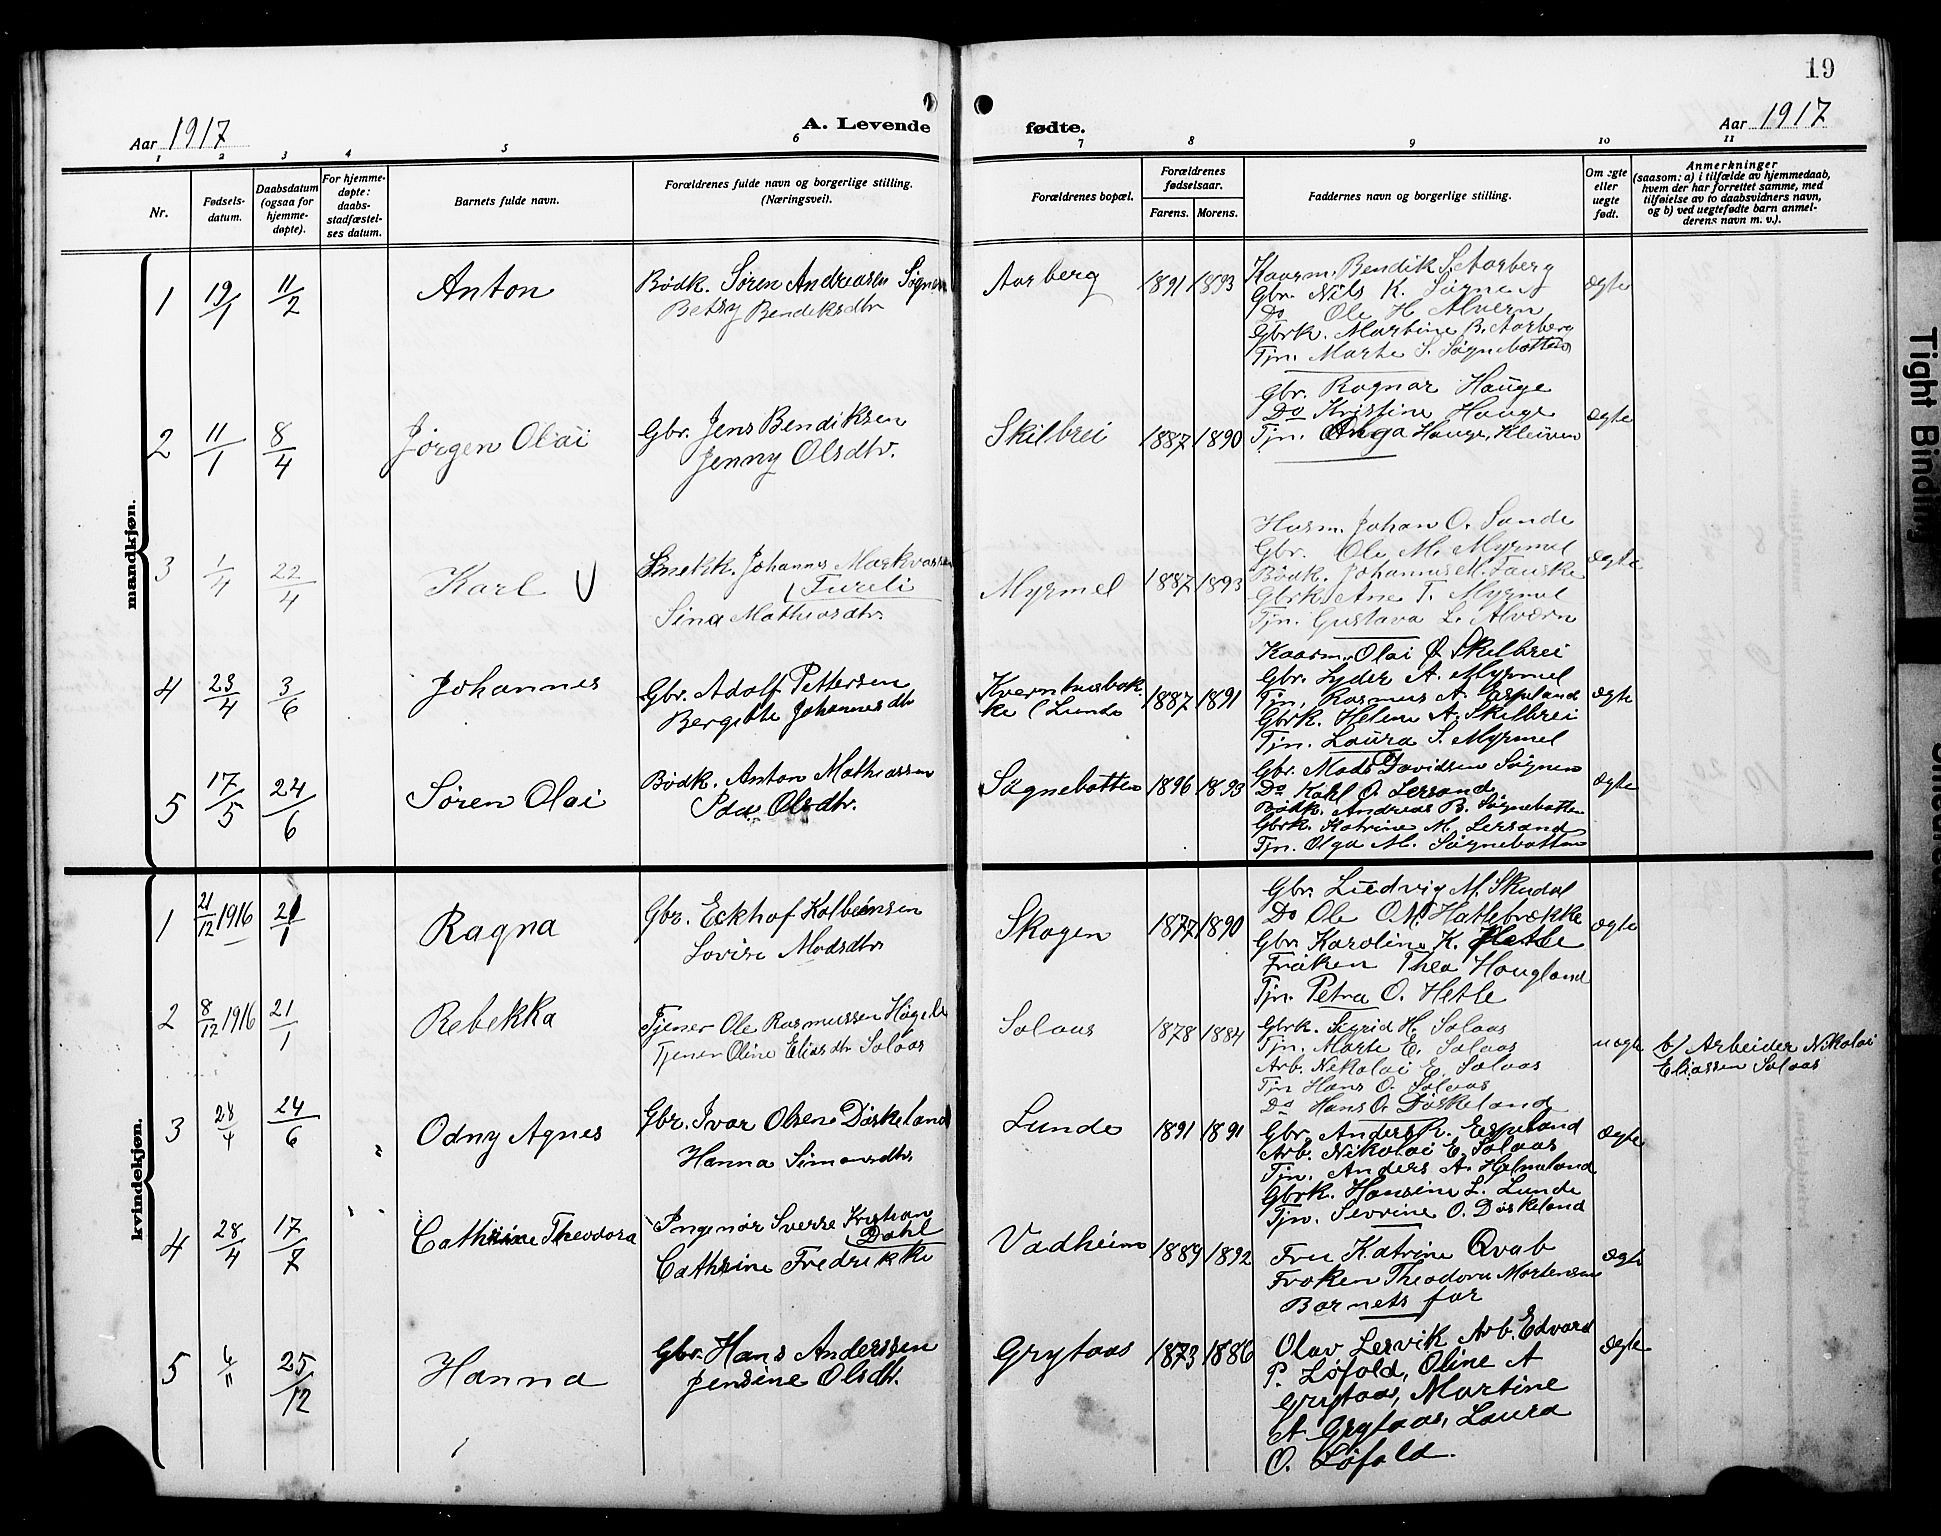 19
Aar 1917
A. Levende
fødte.
Aar 1917
1 2 3 4 5 6 7 8 9 10 11
Nr.
Fødsels-
datum.
Daabsdatum
(ogsaa for
hjemme-
døpte).
For hjemme-
døpte:
daabs-
stadfæstel-
ses datum.
Barnets fulde navn.
Forældrenes fulde navn og borgerlige stilling.
(Næringsvei).
Forældrenes bopæl.
Forældrenes
fødselsaar.
Farens. Morens.
Faddernes navn og borgerlige stilling.
Om ægte
eller
uegte
født.
Anmerkninger
(saasom: a) i tilfælde av hjemmedaab,
hvem der har forrettet samme, med
tilføielse av to daabsvidners navn,
og b) ved uegtefødte barn anmel-
derens navn m. v.).
mandkjøn.
1 19/1 11/2 Anton
Bødk. Søren Andreasen Søgnen
Betsy Bendiksdtr
Aarberg 1891 1893
Kaarm. Bendik S. Aarberg
Gbr. Nils K. Søgnen
Do Ole H. Alvern
Gbrk. Martine B. Aarberg
Tjn. Marte S. Søgnebotten
ægte
2 11/1 8/4 Jørgen Olai
Gbr. Jens Bendiksen
Jenny Olsdtr.
Skilbrei 1887 1890
Gbr. Ragnar Hauge
Do Kristine Hauge
Tjn. Anga Hauge, Kleiven
ægte
3 1/4 22/4 Karl V
Snekk. Johannes Markvassen
(Tureli
Sina Mathiasdtr
Myrmel 1887 1893
Husm. Johan O. Sande
Gbr. Ole M. Myrmel
Bødk. Johannes M. Fauske
Gbrk. Ane T. Myrmel
Tjn. Gustava L. Alværn
ægte
4 23/4 3/6 Johannes
Gbr. Adolf Pettersen
Bergitte Johannesdtr
Kvernhusbak-
ke (Lunde 1887 1891
Kaarm. Olai J. Skilbrei
Gbr. Lyder A. Myrmel
Tjn. Rasmus A. Espeland
Gbrk. Helene A. Skilbrei
Tjn. Laura S. Myrmel
ægte
5 17/5 24/6 Søren Olai
Bødk. Anton Mathiassen
Ida Olsdtr.
Søgnebotten 1896 1893
Gbr. Mads Davidsen Søgnen
Do Karl O. Lersand
Bødk. Andreas B. Søgnebotten
Gbrk. Katrine M. Lersand
Tjn. Olga M. Søgnebotten
ægte
kvindekjøn.
1 21/12 1916 21/1 Ragna
Gbr. Eckhof Kolbeinsen
Lovise Madsdtr
Skogen 1877 1890
Gbr. Ludvig M. Skudal
Do Ole O.M. Hatlebrekke
Gbr. Karoline K. Hetle
Frøken Thea Hougland
Tjn. Petra O. Hetle
ægte
2 8/12 1916 21/1 Rebekka
Tjener Ole Rasmussen
Tjener Oline Eliasdtr Solaas
Solaas 1878 1884
Gbrk. Sigrid H. Solaas
Tjn. Marte E. Solaas
Arb. Nikolai E. Solaas
Tjn Hans O. Solaas
Do Hans O. Døskeland
uægte
b/ Arbeider Nikolai
Eliassen Solaas
3 28/4 24/6 Odny Agnes
Gbr. Ivar Olsen Døskeland
Hanna Simonsdtr
Lunde 1891 1891
Gbr. Anders R. Espeland
Arb. Nikolai E. Solaas
Tjn. Anders A. Holmeland
Gbrk. Hansine L. Lunde
Tjn. Sevrine O. Døskeland
ægte
4 28/4 17/7 Cathrine Theodora
Ingeniør Sverre Kristian
(Dahl
Cathrine Fredrikke
Vadheim 1889 1892
Fru Katrine Qvab
Frøken Theodora Mortensen
Barnets far
ægte
5 6/11 25/12 Hanna
Gbr. Hans Anderssen
Jensine Olsdtr.
Grytaas 1873 1886
Olav Lervik, Arb. Edvard
P. Løfald, Oline A
Grytaas, Martine
A. Grytaas, Laura
O. Løfald.
ægte
Tight Binding